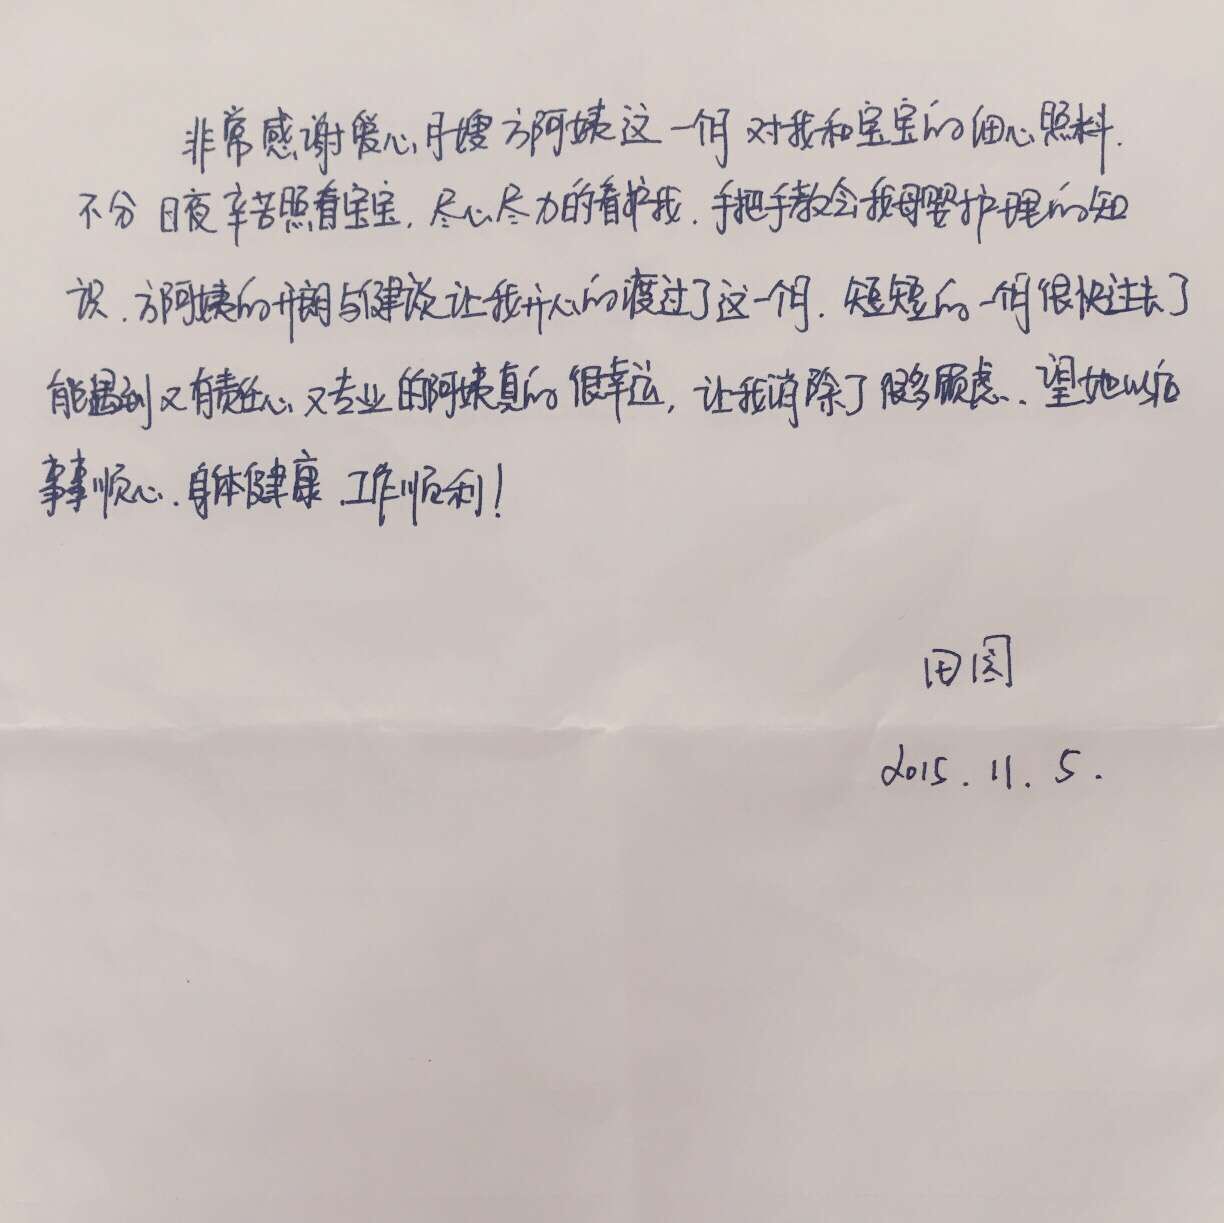 非常感谢爱心月嫂方阿姨这一个月对我和宝宝的细心照料.
不分日夜辛苦照看宝宝.尽心尽力的看护我.手把手教会我母婴护理的知
识.方阿姨的开朗与健谈让我开心的渡过了这一个月.短短的一个月很快过去了
能遇到又有责任心又专业的阿姨真的很幸运,让我消除了很多顾虑.望她以后
事事顺心.身体健康.工作顺利!
田图
2015.11.5.